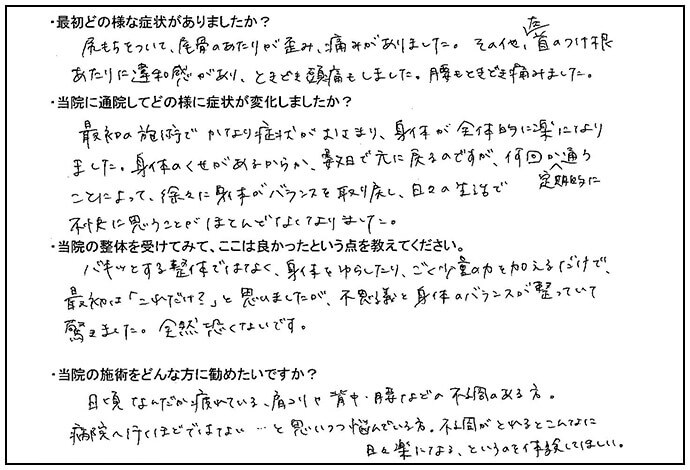 ・最初どの様な症状がありましたか？
尻もちをついて、尾骨のあたりが歪み、痛みがありました。その他、左首のつけ根
あたりに違和感があり、ときどき頭痛もしました。腰もときどき痛みました。
・当院に通院してどの様に症状が変化しましたか？
最初の施術でかなり症状がおさまり、身体が全体的に楽になり
ました。身体のくせがあるからか、数日で元に戻るのですが、何回か定期的に通う
ことによって、徐々に身体がバランスを取り戻し、日々の生活で
不快に思うことがほとんどなくなりました。
・当院の整体を受けてみて、ここは良かったという点を教えてください。
バキッとする整体ではなく、身体をゆらしたり、ごく少量の力を加えるだけで、
最初は「これだけ？」と思いましたが、不思議と身体のバランスが整っていて
驚きました。全然恐くないです。
・当院の施術をどんな方に勧めたいですか？
日頃なんだか疲れている、肩コリや背中・腰などの不調のある方。
病院へ行くほどではない…と思いつつ悩んでいる方。不調がとれるとこんなに
日々楽になる、というのを体験してほしい。